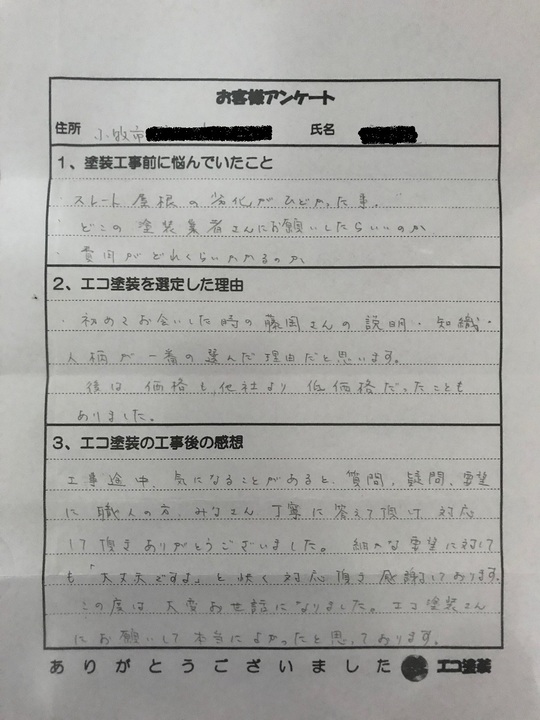 お客様アンケート
住所 小牧市 氏名
1、塗装工事前に悩んでいたこと
・スレート屋根の劣化がひどかった事。
・どこの塗装業者さんにお願いしたらいいのか
・費用がどれくらいかかるのか
2、エコ塗装を選定した理由
・初めてお会いした時の藤岡さんの説明・知識・
人柄が一番の選んだ理由だと思います。
後は価格も他社より低価格だったことも
ありました。
3、エコ塗装の工事後の感想
工事途中、気になることがあると、質問、疑問、要望
に職人の方、みなさん丁寧に答えて頂け、対応
して頂きありがとうございました。細かな要望に対して
も「大丈夫ですよ」と快く対応頂き感謝しております。
この度は大変お世話になりました。エコ塗装さん
にお願いして本当によかったと思っております。
ありがとうございました エコ塗装